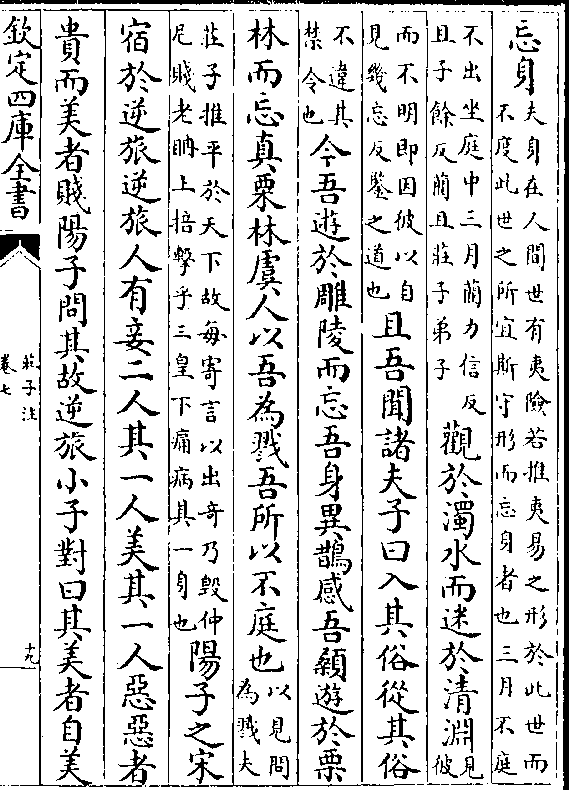 忘身夫身在人間世有夷險若推夷易之形於此世而
不度此世之所宜斯守形而忘身者也三月不庭
不出坐庭中三月藺力信反
且子餘反藺且莊子弟子觀於濁水而迷於清淵見彼
而不明即因彼以自
見幾忘反鑒之道也且吾聞諸夫子曰入其俗從其俗
不違其
禁令也今吾遊於雕陵而忘吾身異鵲感吾顙遊於栗
林而忘真栗林虞人以吾為戮吾所以不庭也以見問
為戮夫
莊子推平於天下故每寄言以出奇乃毀仲
尼賤老聃上掊擊乎三皇下痛病其一身也陽子之宋
宿於逆旅逆旅人有妾二人其一人美其一人惡惡者
貴而美者賤陽子問其故逆旅小子對曰其美者自美
欽定四庫全書
莊子注
卷七
十九